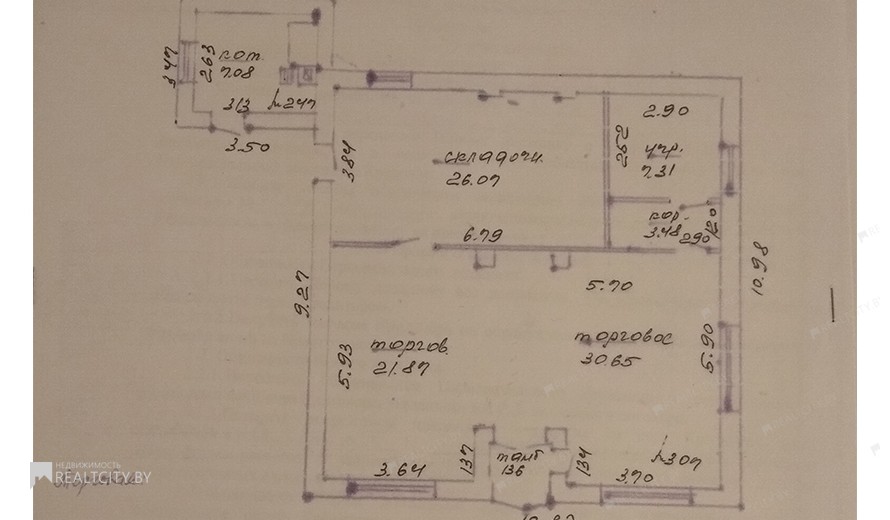 кот.
7.08
3.47
2.63
3.13
h 2.47
3.50
3.84
складочн.
26.07
6.79
2.90
2.52
7.31
кор.
3.48
2.90
1.20
10.98
9.27
5.93
торгов.
21.87
5.70
торговое
30.65
5.90
3.64
1.37
тамб
1.36
1.34
h 3.07
3.70
НЕДВИЖИМОСТЬ
REALTCITY.BY